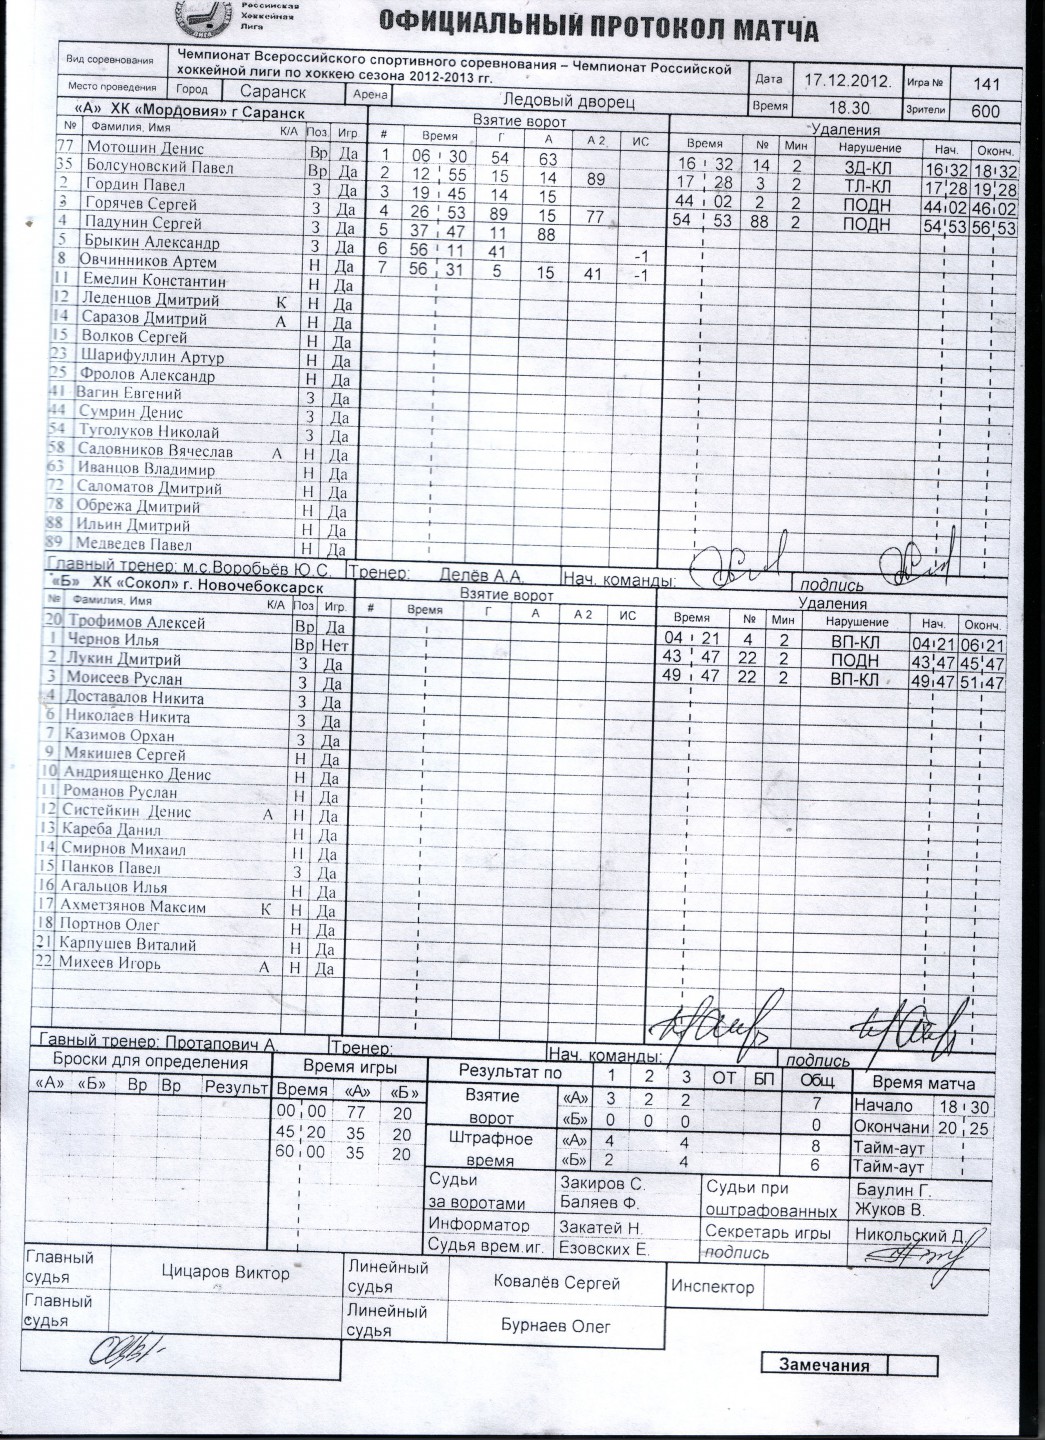 Российская
Хоккейная
Лига
ЛИГА
ОФИЦИАЛЬНЫЙ ПРОТОКОЛ МАТЧА
Вид соревнования Чемпионат Всероссийского спортивного соревнования – Чемпионат Российской хоккейной лиги по хоккею сезона 2012-2013 гг. Дата 17.12.2012. Игра № 141
Место проведения Город Саранск Арена Ледовый дворец Время 18.30. Зрители 600
«А» ХК «Мордовия» г Саранск Взятие ворот Удаления
№ Фамилия, Имя К/А Поз Игр # Время Г А А 2 ИС Время № Мин Нарушение Нач. Оконч.
77 Мотошин Денис Вр Да 1 06 30 54 63 16 32 14 2 ЗД-КЛ 16 32 18 32
35 Болсуновский Павел Вр Да 2 12 55 15 14 89 17 28 3 2 ТЛ-КЛ 17 28 19 28
2 Гордин Павел З Да 3 19 45 14 15 44 02 2 2 ПОДН 44 02 46 02
3 Горячев Сергей З Да 4 26 53 89 15 77 54 53 88 2 ПОДН 54 53 56 53
4 Падунин Сергей З Да 5 37 47 11 88
5 Брыкин Александр З Да 6 56 11 41 -1
8 Овчинников Артем Н Да 7 56 31 5 15 41 -1
11 Емелин Константин Н Да
12 Леденцов Дмитрий К Н Да
14 Саразов Дмитрий А Н Да
15 Волков Сергей Н Да
23 Шарифуллин Артур Н Да
25 Фролов Александр Н Да
41 Вагин Евгений З Да
44 Сумрин Денис З Да
54 Туголуков Николай З Да
58 Садовников Вячеслав А Н Да
63 Иванцов Владимир Н Да
72 Саломатов Дмитрий Н Да
78 Обрежа Дмитрий Н Да
88 Ильин Дмитрий Н Да
89 Медведев Павел Н Да
Главный тренер: м.с.Воробьёв Ю.С. Тренер: Делёв А.А. Нач. команды: подпись
«Б» ХК «Сокол» г. Новочебоксарск Взятие ворот Удаления
№ Фамилия, Имя К/А Поз Игр. # Время Г А А 2 ИС Время № Мин Нарушение Нач. Оконч.
20 Трофимов Алексей Вр Да 04 21 4 2 ВП-КЛ 04 21 06 21
1 Чернов Илья Вр Нет 43 47 22 2 ПОДН 43 47 45 47
2 Лукин Дмитрий З Да 49 47 22 2 ВП-КЛ 49 47 51 47
3 Моисеев Руслан З Да
4 Доставалов Никита З Да
6 Николаев Никита З Да
7 Казимов Орхан З Да
9 Мякишев Сергей Н Да
10 Андриященко Денис Н Да
11 Романов Руслан Н Да
12 Систейкин Денис А Н Да
13 Кареба Данил Н Да
14 Смирнов Михаил Н Да
15 Панков Павел З Да
16 Агальцов Илья Н Да
17 Ахметзянов Максим К Н Да
18 Портнов Олег Н Да
21 Карпушев Виталий Н Да
22 Михеев Игорь А Н Да
Гавный тренер: Протапович А. Тренер: Нач. команды: подпись
Броски для определения Время игры Результат по 1 2 3 ОТ БП Общ. Время матча
«А» «Б» Вр Вр Результ Время «А» «Б» Взятие ворот «А» 3 2 2 7 Начало 18 30
00 00 77 20 «Б» 0 0 0 0 Окончани 20 25
45 20 35 20 Штрафное время «А» 4 4 8 Тайм-аут
60 00 35 20 «Б» 2 4 6 Тайм-аут
Судьи за воротами Закиров С. Баляев Ф. Судьи при оштрафованных Баулин Г. Жуков В.
Информатор Закатей Н. Секретарь игры Никольский Д.
Судья врем.иг. Езовских Е. подпись
Главный судья Цицаров Виктор Линейный судья Ковалёв Сергей Инспектор
Главный судья Линейный судья Бурнаев Олег
Замечания